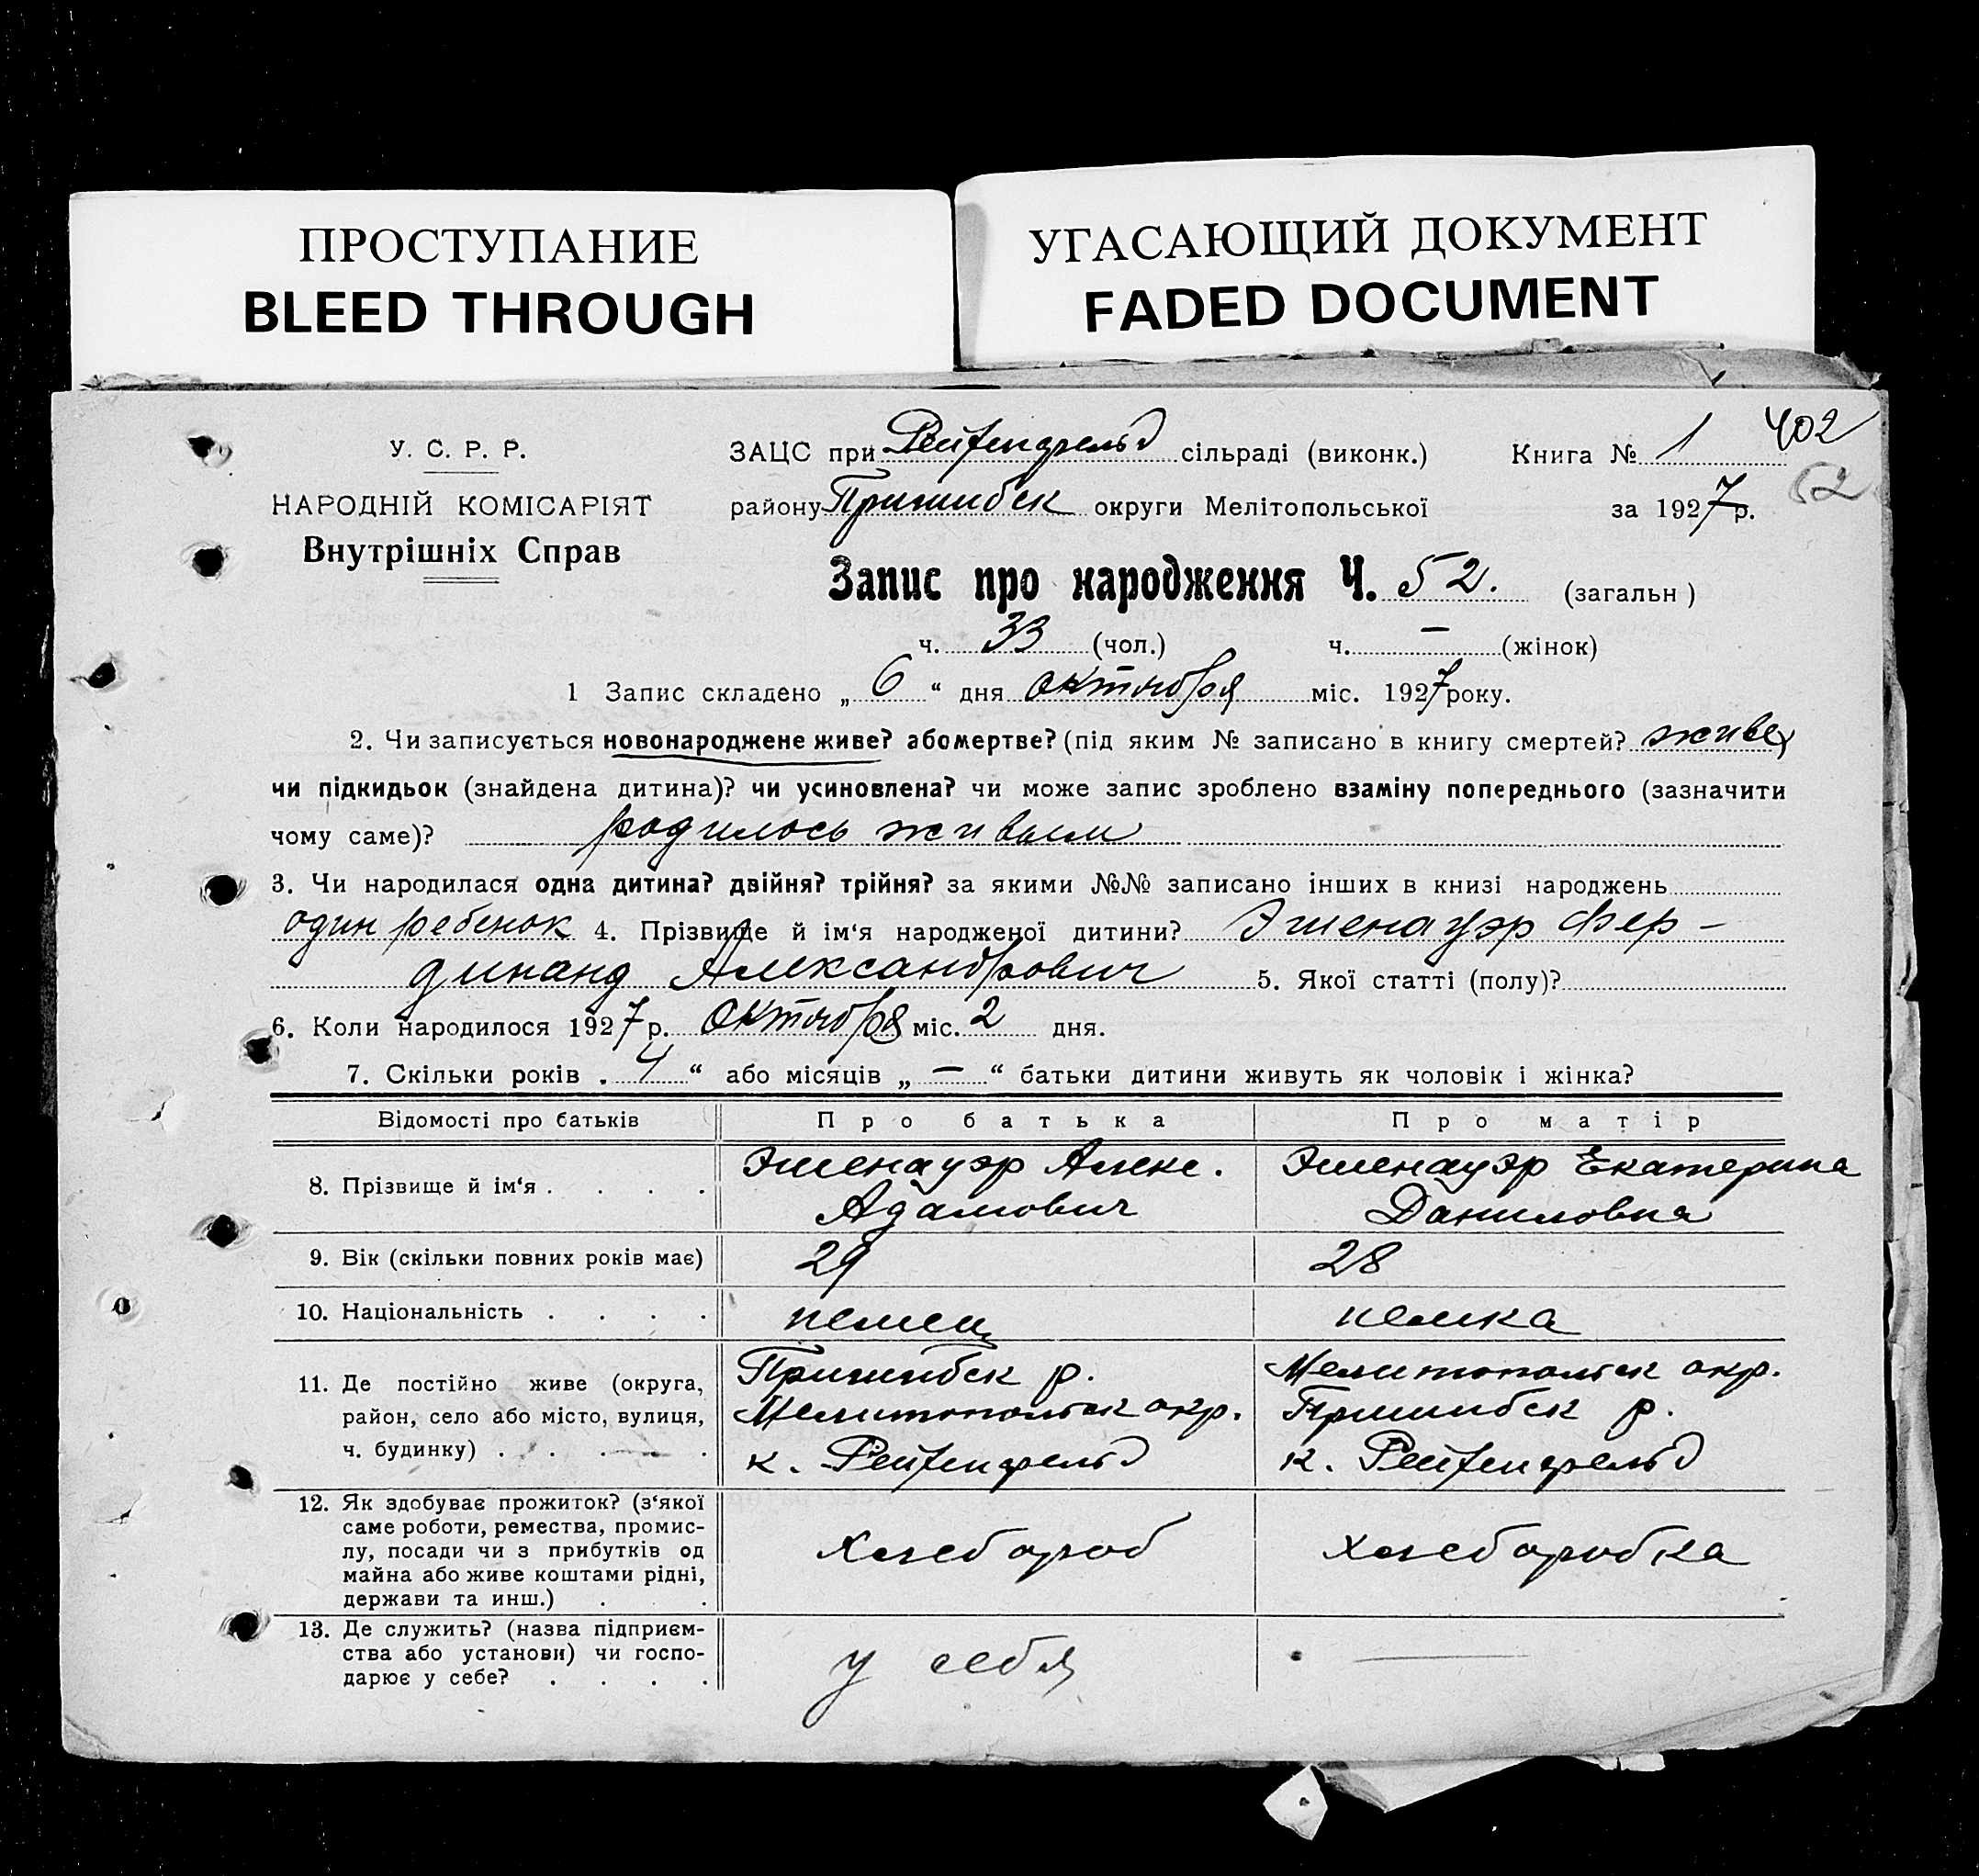 ПРОСТУПАНИЕ
BLEED THROUGH
УГАСАЮЩИЙ ДОКУМЕНТ
FADED DOCUMENT
402
52
У. С. Р. Р.
НАРОДНІЙ КОМІСАРІЯТ
Внутрішніх Справ
ЗАЦС при Рейхенфельд сільраді (виконк.) Книга № 1
району Пришибск округи Мелітопольської за 1927 р.
Запис про народження Ч. 52. (загальн)
ч. 33 (чол.) ч. — (жінок)
1 Запис складено „ 6 “ дня октября міс. 1927 року.
2. Чи записується новонароджене живе? або мертве? (під яким № записано в книгу смертей?
чи підкидьок (знайдена дитина)? чи усиновлена? чи може запис зроблено взаміну попереднього (зазначити
чому саме)? родилось живым
3. Чи народилася одна дитина? двійня? трійня? за якими №№ записано інших в книзі народжень
один ребенок 4. Прізвище й ім‘я народженої дитини? Эшенауэр Фер-
динанд Александрович 5. Якої статті (полу)?
6. Коли народилося 1927 р. октября міс. 2 дня.
7. Скільки років „ 4 “ або місяців „ — “ батьки дитини живуть як чоловік і жінка?
Відомості про батьків Про батька Про матір
8. Прізвище й ім‘я . . . . Эшенауэр Алекс. Эшенауэр Екатерина
Адамович Даниловна
9. Вік (скільки повних років має) 29 28
10. Національність . . . . немец немка
11. Де постійно живе (округа, Пришибск р. Мелитопольск окр.
район, село або місто, вулиця, Мелитопольск окр. Пришибск р.
ч. будинку) . . . . . к. Рейхенфельд к. Рейхенфельд
12. Як здобуває прожиток? (з‘якої
саме роботи, ремества, промис-
лу, посади чи з прибутків од хлебороб хлеборобка
майна або живе коштами рідні,
держави та инш.) . .
13. Де служить? (назва підприєм-
ства або установи) чи госпо- у себя —
дарює у себе? . . . .